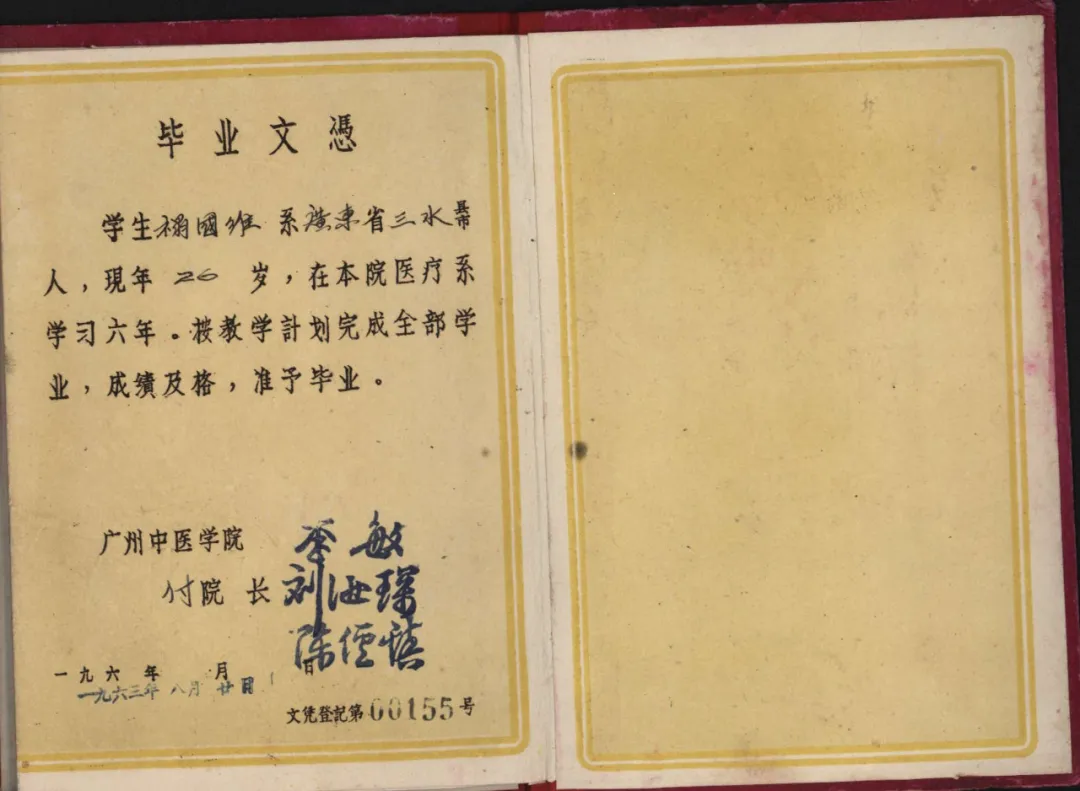 毕业文憑
学生禤國維 系廣東省三水县市
人，現年 26 岁，在本院医疗系
学习六年。按教学計划完成全部学
业，成績及格，准予毕业。
广州中医学院 李敏
付院 长 刘汝琛
陈
一九六 年 月 日
一九六三年八月廿日
文凭登記第00155号